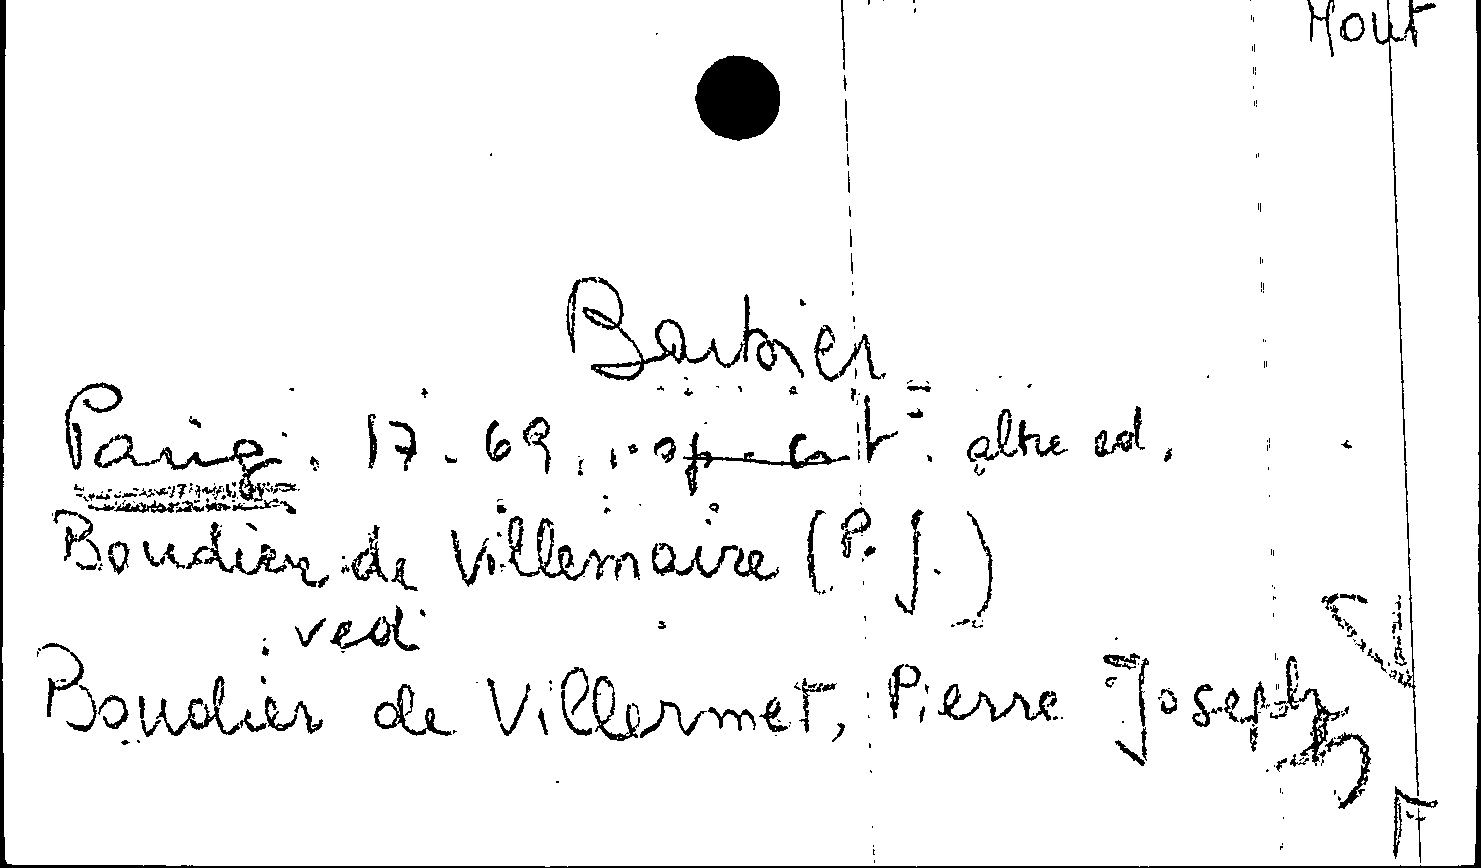 Hout
Barbier
Parig. 17-69. op. cit. altre ed.
Boudier de Villemaire (P. J.)
vedi
Boudier de Villermet, Pierre Joseph